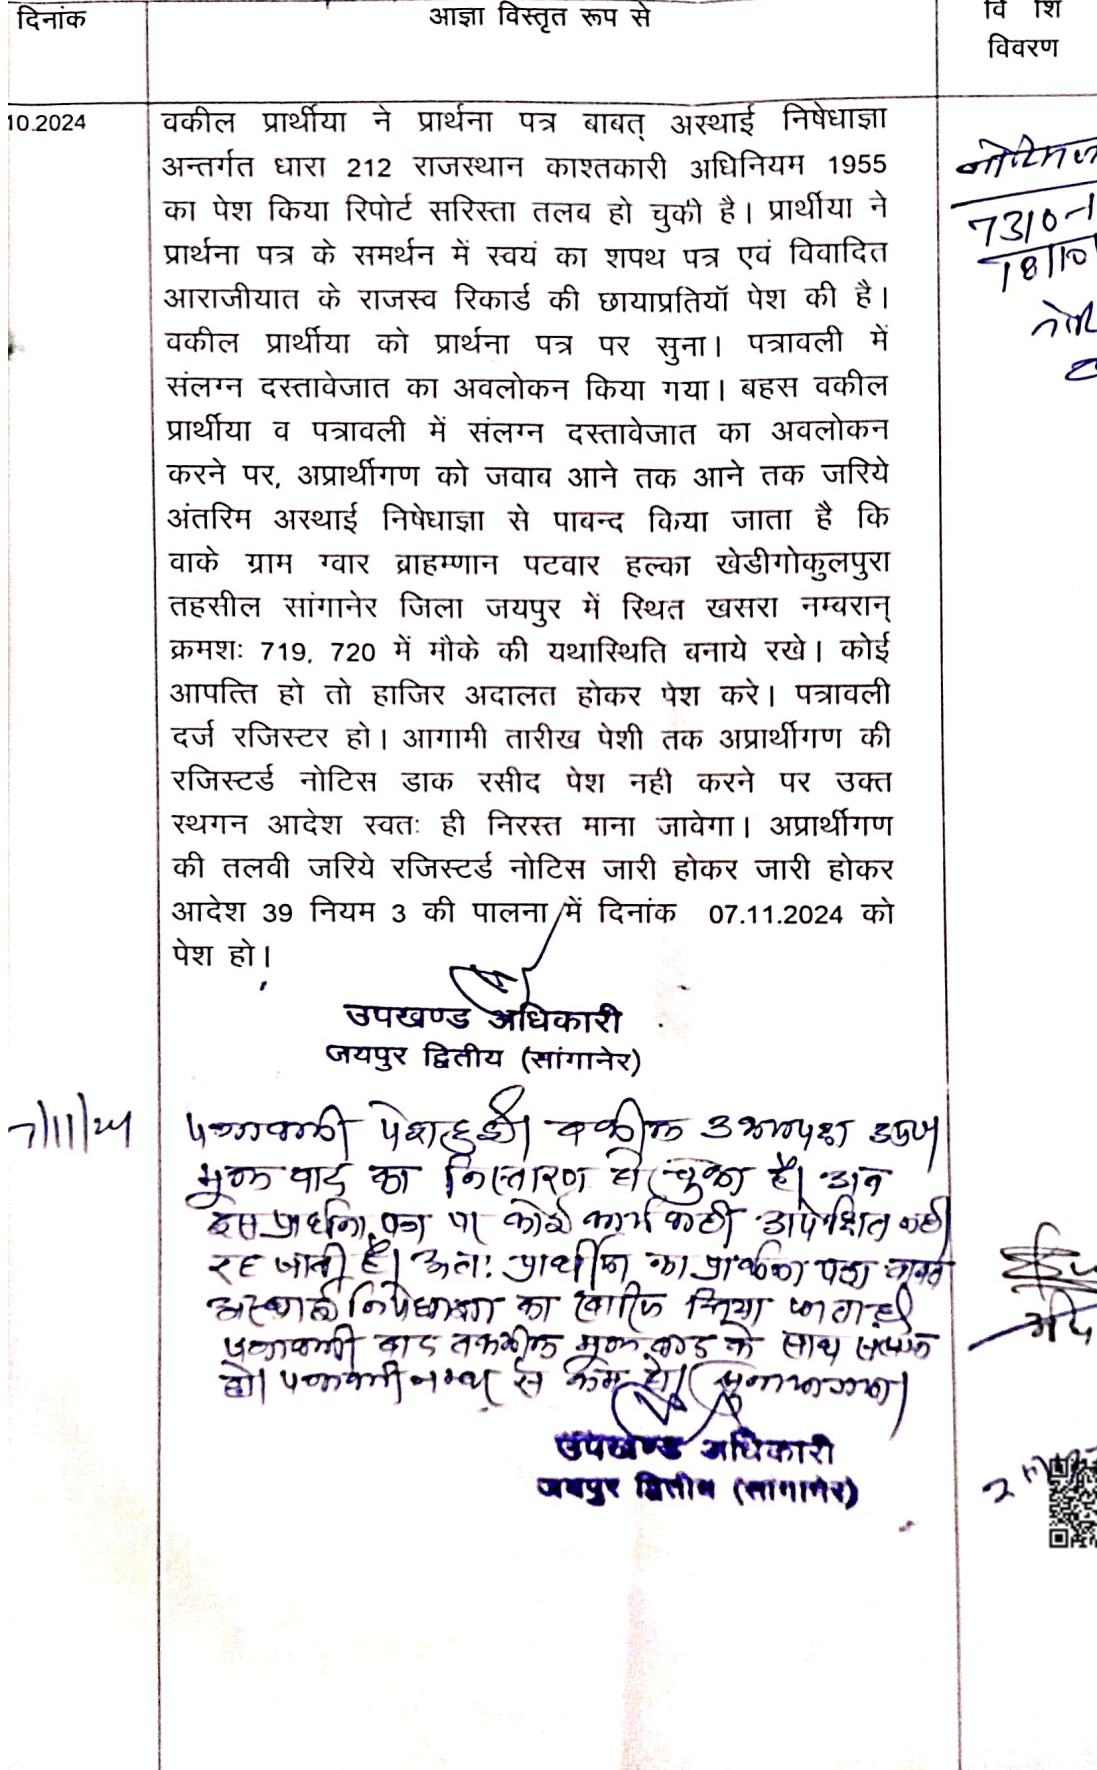 दिनांक
आज्ञा विस्तृत रूप से
वि शि
विवरण
10.2024
वकील प्रार्थीया ने प्रार्थना पत्र बाबत् अस्थाई निषेधाज्ञा
अन्तर्गत धारा 212 राजस्थान काश्तकारी अधिनियम 1955
का पेश किया रिपोर्ट सरिस्ता तलब हो चुकी है। प्रार्थीया ने
प्रार्थना पत्र के समर्थन में स्वयं का शपथ पत्र एवं विवादित
आराजीयात के राजस्व रिकार्ड की छायाप्रतियॉ पेश की है।
वकील प्रार्थीया को प्रार्थना पत्र पर सुना। पत्रावली में
संलग्न दस्तावेजात का अवलोकन किया गया। बहस वकील
प्रार्थीया व पत्रावली में संलग्न दस्तावेजात का अवलोकन
करने पर, अप्रार्थीगण को जवाब आने तक आने तक जरिये
अंतरिम अस्थाई निषेधाज्ञा से पाबन्द किया जाता है कि
वाके ग्राम ग्वार ब्राहम्णान पटवार हल्का खेडीगोकुलपुरा
तहसील सांगानेर जिला जयपुर में स्थित खसरा नम्बरान्
क्रमशः 719, 720 में मौके की यथास्थिति बनाये रखे। कोई
आपत्ति हो तो हाजिर अदालत होकर पेश करे। पत्रावली
दर्ज रजिस्टर हो। आगामी तारीख पेशी तक अप्रार्थीगण की
रजिस्टर्ड नोटिस डाक रसीद पेश नही करने पर उक्त
स्थगन आदेश स्वतः ही निरस्त माना जावेगा। अप्रार्थीगण
की तलवी जरिये रजिस्टर्ड नोटिस जारी होकर जारी होकर
आदेश 39 नियम 3 की पालना में दिनांक 07.11.2024 को
पेश हो।
उपखण्ड अधिकारी
जयपुर द्वितीय (सांगानेर)
7/11/24
पत्रावली पेश हुई। वकील उभयपक्ष उप०
मूल वाद का निस्तारण हो चुका है। अब
इस प्रार्थना पत्र पर कोई कार्यवाही अपेक्षित नहीं
रह जाती है। अतः प्रार्थीया का प्रार्थना पत्र बाबत
अस्थाई निषेधाज्ञा का खारिज किया जाता है।
पत्रावली बाद तकमील मूल वाद के साथ संलग्न
हो। पत्रावली नम्बर से कम हो। सुनाया गया।
उपखण्ड अधिकारी
जयपुर द्वितीय (सांगानेर)